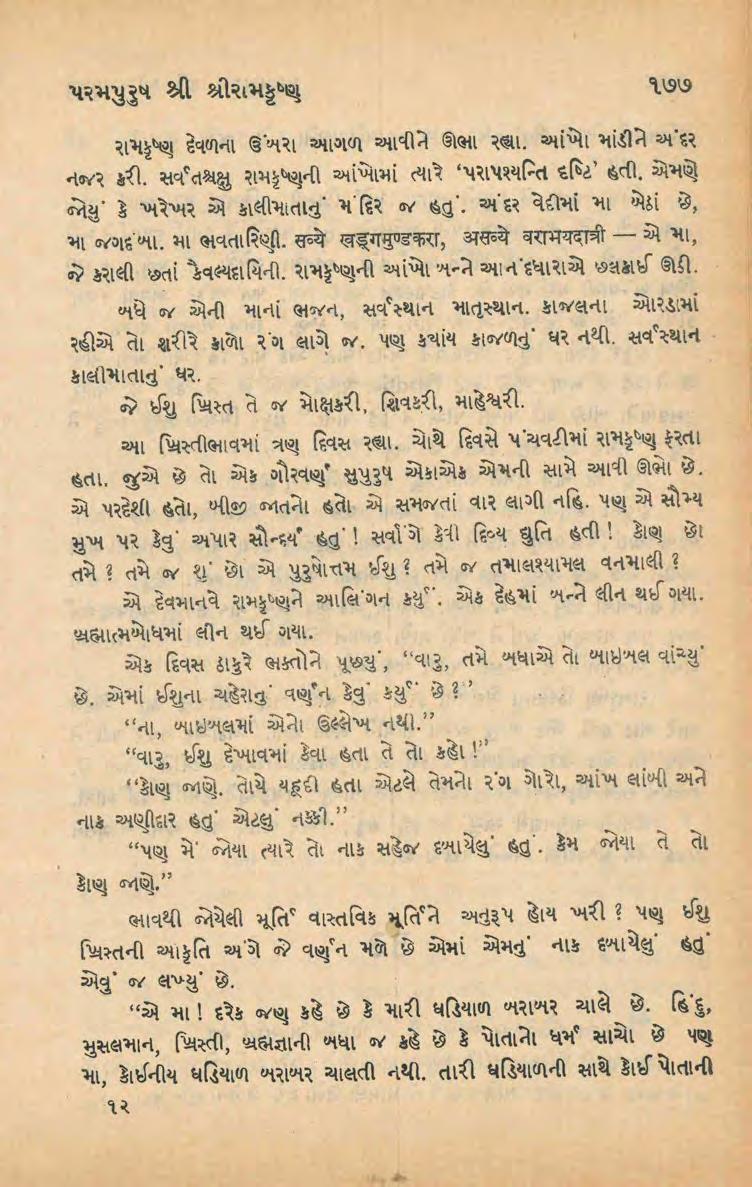 પરમપુરુષ શ્રી શ્રીરામકૃષ્ણ ૧૭૭
રામકૃષ્ણ દેવળના ઉંબરા આગળ આવીને ઊભા રહ્યા. આંખો માંડીને અંદર
નજર કરી. સર્વતશ્ચક્ષુ રામકૃષ્ણની આંખોમાં ત્યારે ‘પરાપશ્યન્તિ દૃષ્ટિ’ હતી. એમણે
જોયું કે ખરેખર એ કાલીમાતાનું મંદિર જ હતું. અંદર વેદીમાં મા બેઠાં છે,
મા જગદંબા. મા ભવતારિણી. सव्ये खड्गमुण्डकरा, असव्ये वराभयदात्री — એ મા,
જે કરાલી છતાં કૈવલ્યદાયિની. રામકૃષ્ણની આંખો બન્ને આનંદધારાએ છલકાઈ ઊઠી.
બધે જ એની માનાં ભજન, સર્વસ્થાન માતૃસ્થાન. કાજલના ઓરડામાં
રહીએ તો શરીરે કાળો રંગ લાગે જ. પણ કયાંય કાજળનું ઘર નથી. સર્વસ્થાન
કાલીમાતાનું ઘર.
જે ઈશુ ખ્રિસ્ત તે જ મોક્ષકરી, શિવકરી, માહેશ્વરી.
આ ખ્રિસ્તીભાવમાં ત્રણ દિવસ રહ્યા. ચોથે દિવસે પંચવટીમાં રામકૃષ્ણ ફરતા
હતા. જુએ છે તો એક ગૌરવર્ણ સુપુરુષ એકાએક એમની સામે આવી ઊભો છે.
એ પરદેશી હતો, બીજી જાતનો હતો એ સમજતાં વાર લાગી નહિ. પણ એ સૌમ્ય
મુખ પર કેવું અપાર સૌન્દર્ય હતું! સર્વાંગે કેવી દિવ્ય દ્યુતિ હતી! કોણ છો
તમે? તમે જ શું છો એ પુરુષોત્તમ ઈશુ? તમે જ તમાલશ્યામલ વનમાલી?
એ દેવમાનવે રામકૃષ્ણને આલિંગન કર્યું. એક દેહમાં બન્ને લીન થઈ ગયા.
બ્રહ્માત્મબોધમાં લીન થઈ ગયા.
એક દિવસ ઠાકુરે ભક્તોને પૂછ્યું, “વારુ, તમે બધાએ તો બાઇબલ વાંચ્યું
છે. એમાં ઈશુના ચહેરાનું વર્ણન કેવું કર્યું છે?”
“ના, બાઇબલમાં એનો ઉલ્લેખ નથી.”
“વારુ, ઈશુ દેખાવમાં કેવા હતા તે તો કહો!”
“કોણ જાણે. તોયે યહૂદી હતા એટલે તેમનો રંગ ગોરો, આંખ લાંબી અને
નાક અણીદાર હતું એટલું નક્કી.”
“પણ મેં જોયા ત્યારે તો નાક સહેજ દબાયેલું હતું. કેમ જોયા તે તો
કોણ જાણે.”
ભાવથી જોયેલી મૂર્તિ વાસ્તવિક મૂર્તિને અનુરૂપ હોય ખરી? પણ ઈશુ
ખ્રિસ્તની આકૃતિ અંગે જે વર્ણન મળે છે એમાં એમનું નાક દબાયેલું હતું
એવું જ લખ્યું છે.
“એ મા! દરેક જણ કહે છે કે મારી ઘડિયાળ બરાબર ચાલે છે. હિંદુ,
મુસલમાન, ખ્રિસ્તી, બ્રહ્મજ્ઞાની બધા જ કહે છે કે પોતાનો ધર્મ સાચો છે પણ
મા, કોઈનીય ઘડિયાળ બરાબર ચાલતી નથી. તારી ઘડિયાળની સાથે કોઈ પોતાની
૧૨